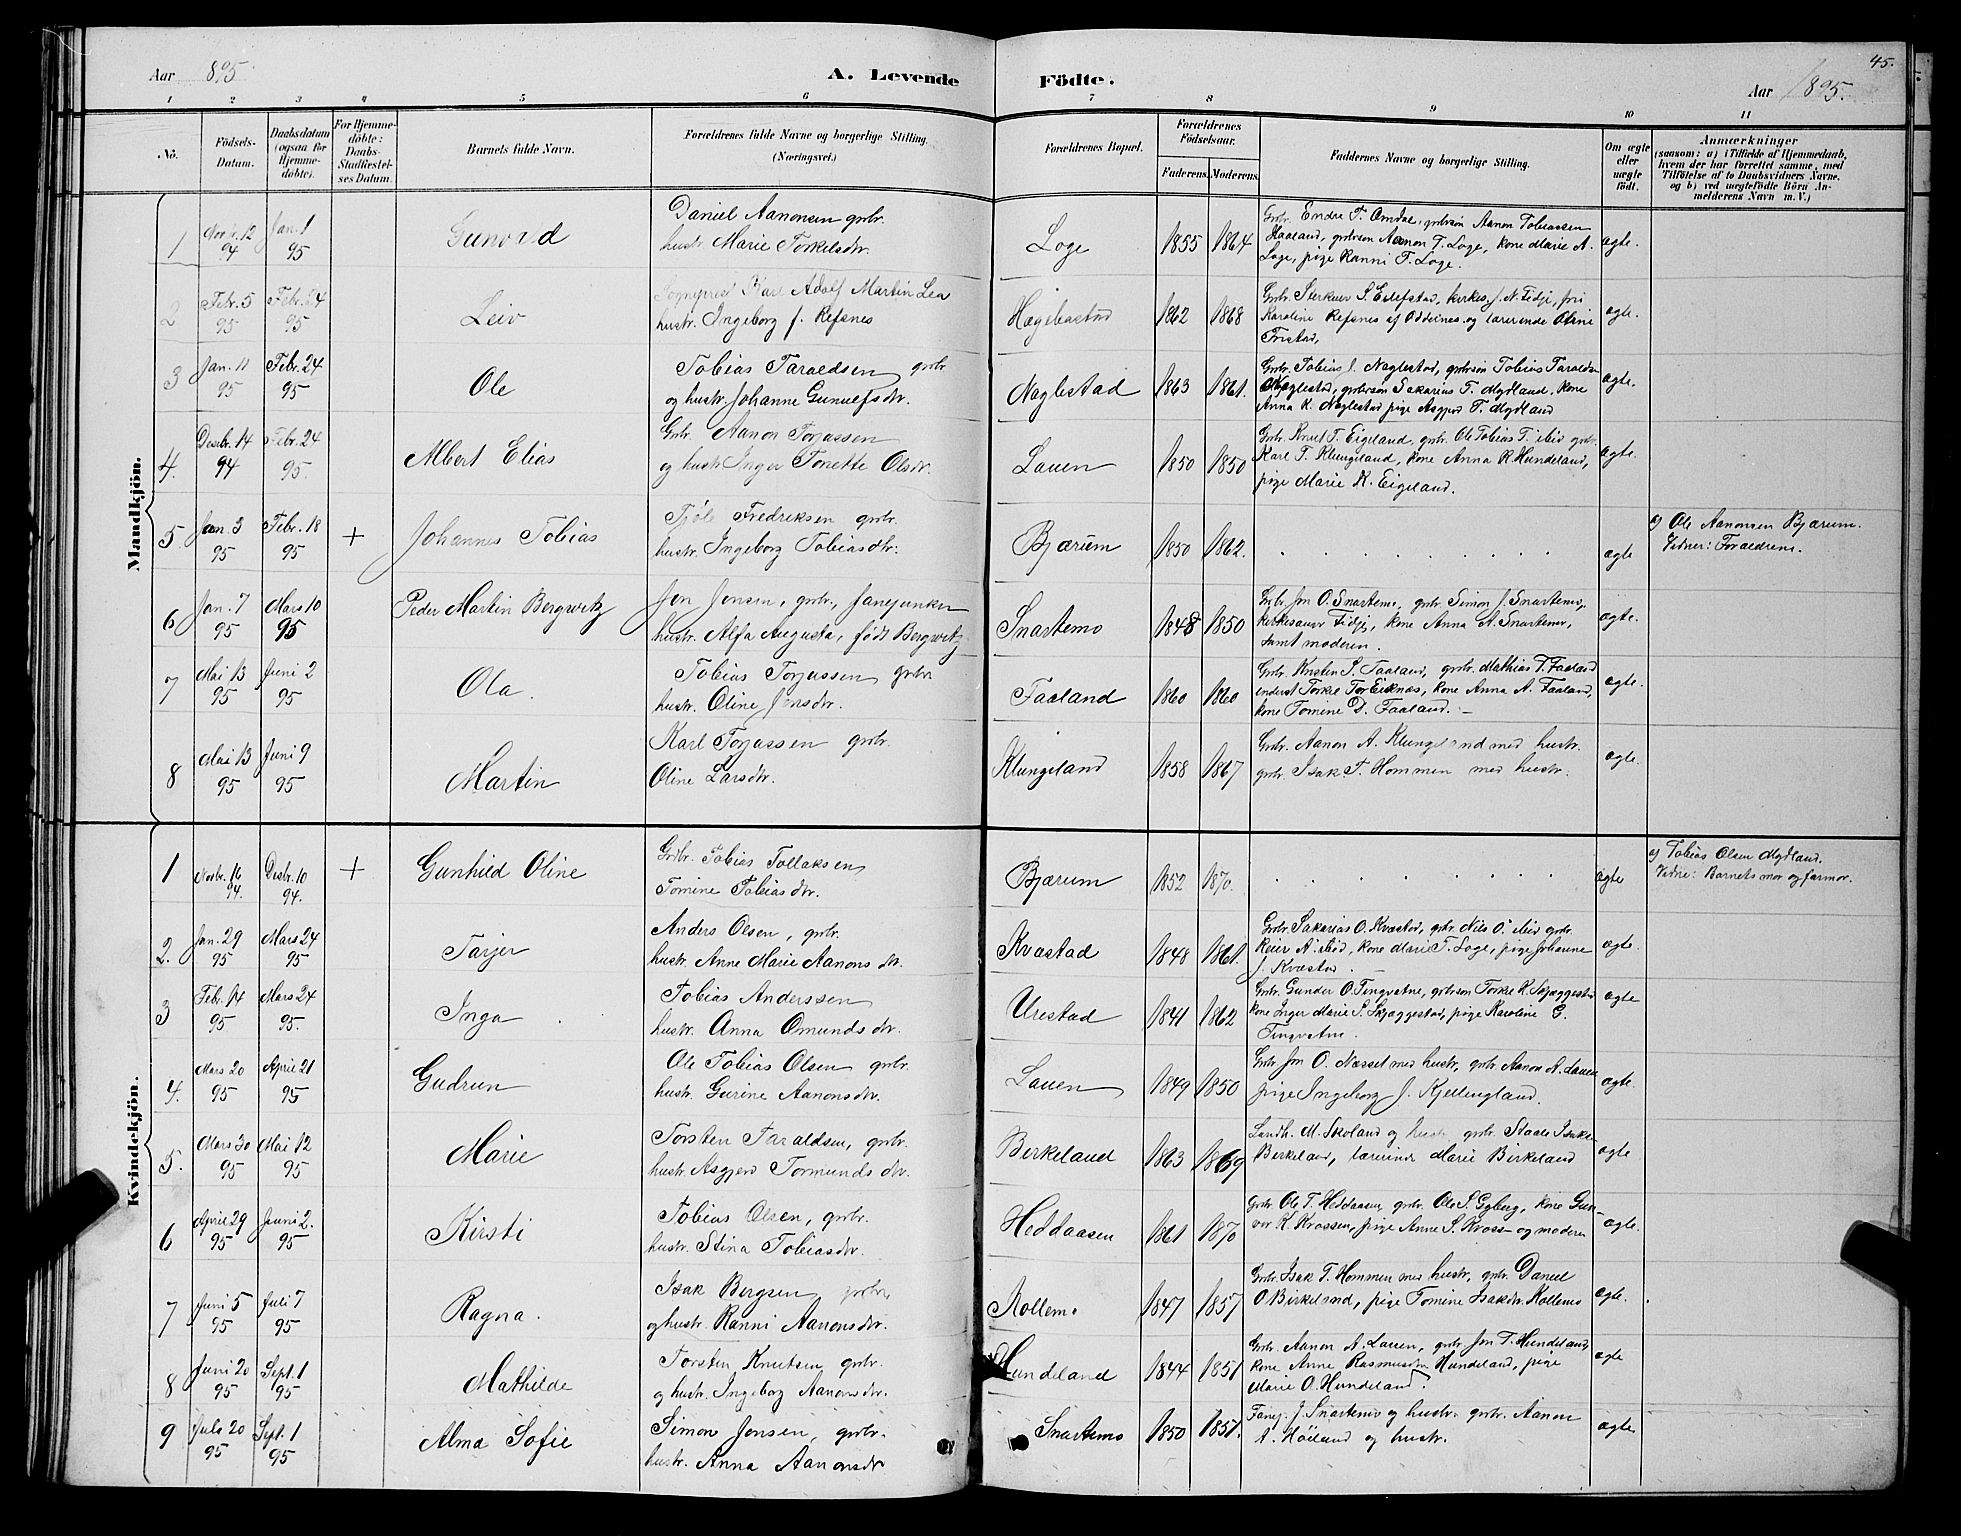 45.
Aar 895. A. Levende Födte. Aar 1895.
1 2 3 4 5 6 7 8 9 10 11
No.
Födsels-Datum.
Daabsdatum (ogsaa for Hjemme-döbte).
For Hjemme-döbte: Daabs-Stadfæstel-ses Datum.
Barnets fulde Navn.
Forældrenes fulde Navne og borgerlige Stilling. (Næringsvei.)
Forældrenes Bopæl.
Forældrenes Födselsaar.
Faderens. Moderens.
Faddernes Navne og borgerlige Stilling.
Om ægte eller uægte födt.
Anmærkninger
(saasom: a) i Tilfælde af Hjemmedaab,
hvem der har forrettet samme, med
Tilföielse af to Daabsvidners Navne.
og b) ved uægtefödte Börn An-
melderens Navn m. V.)
Mandkjön.
1 Novbr. 12 94 Jan. 1 95 Gunvald
Daniel Aanonsen grbr.
hustr. Marie Torkelsdtr.
Loge 1855 1864
Grbr. Endre T. Omdal, grbrsøn Aanon Tobiassen
Haaland, grbrsøn Aanon T. Loge, kone Marie A.
Loge, pige Ranni T. Loge.
ægte.
2 Febr. 5 95 Febr. 24 95 Leiv
Sogneprest Karl Adolf Martin Lea
hustr. Ingeborg f. Refsnes
Hægebostad 1862 1868
Grbr. Sterkuer S. Eilefstad, kirkes. J. N. Fidje, fri
Karoline Refsnes af Oddernes og lærerinde Oline
Tristad,
ægte.
3 Jan. 11 95 Febr. 24 95 Ole
Tobias Taraldsen grbr.
og hustr. Johanne Gunulfsdtr.
Naglestad 1863 1861.
Grbr. Tobias J. Naglestad, grbrsøn Tobias Taraldsn
Naglestad, grbrsøn Sakarias T. Mydland, kone
Anna K. Naglestad pige Asgjerd T. Mydland
ægte.
4. Desbr. 14 94 Febr. 24 95. Albert Elias
Grbr. Aanon Torjassen
og hustr. Inger Tonette Olsdtr.
Lauen 1850 1850
Grbr. Knut T. Eigeland, grbr. Ole Tobias T. ibid grbr.
Karl T. Klungeland, kone Anna R. Hundeland,
pige Marie K. Eigeland.
ægte.
5. Jan 3 95 Febr. 18 95 + Johannes Tobias
Fredriksen grbr.
hustr. Ingeborg Tobiasdtr.
Bjærum 1850 1862. . . . . . . . . ægte
a) Ole Aanonsen Bjærum.
Vidner: Forældrene.
6 Jan. 7 95 Mars 10 95 Peder Martin Bergwitz
Jon Jonsen, grbr, fanejunker
hustr. Alfa Augusta, født Bergwitz
Snartemo 1848 1850
Grbr. Jon O. Snartemo, grbr. Simon J. Snartemo,
kirkesanger Fidje, kone Anna A. Snartemo,
samt moderen.
ægte.
7 Mai 13 95 Juni 2 95 Ola.
Tobias Torjassen grbr.
hustr. Oline Jensdtr.
Faaland 1860 1860
Grbr. Kristen S. Faaland, grbr. Mathias T. Faaland
inderst Torkel Eiknæs, kone Anna A. Faaland,
kone Tomine D. Faaland. –
ægte.
8 Mai 13 95 Juni 9 95 Martin
Karl Torjassen grbr.
Oline Larsdtr.
Klungeland 1858 1867
Grbr. Aanon A. Klungeland med hustr.
grbr. Isak T. Hommen med hustr.
ægte.
Kvindekjön.
1 Novbr. 16 94. Desbr. 10 94. + Gunhild Oline
Grbr. Tobias Tollaksen
Tomine Tobiasdtr.
Bjærum 1852 1870. . . . . . . . . ægte
a) Tobias Olsen Mydland.
Vidne: Barnets mor og farmor.
2. Jan. 29 95 Mars 24 95 Tarjer
Anders Olsen, grbr.
hustr. Anne Marie Aanonsdtr.
Kvæstad 1848 1861.
Grbr. Sakarias O. Kvæstad, grbr. Nils O. ibid grbr.
Reier A. ibid, kone Marie T. Loge, pige Johanne
J. Kvæstad. –
ægte.
3 Febr. 14 95 Mars 24 95. Inga
Tobias Anderssen
hustr. Anna Omundsdtr.
Urestad 1841 1862
Grbr. Gunder O. Tingvatne, grbrsøn Torkel K. Skjeggestad
kone Inger Marie S. Skjæggestad, pige Karoline G.
Tingvatne.
ægte
4. Mars 20 95 April 21 95 Gudrun
Ole Tobias Olsen grbr.
hustr. Gurine Aanonsdtr.
Lauen 1849 1850
Grbr. Jon O. Næsset med hustr, grbr. Aanon A. Lauen
pige Ingeborg J. Kjellingland.
ægte.
5. Mars 30 95 Mai 12 95 Marie
Torsten Taraldsen, grbr.
hustr. Asgjerd Tormundsdtr.
Birkeland 1863 1869
Landh. M. Skoland og hustr grbr. Staale Isaks.
Birkeland, lærerinde Marie Birkeland
ægte.
6 April 29 95 Juni 2. 95 Kirsti
Tobias Olsen, grbr.
hustr. Stina Tobiasdtr.
Heddaasen 1861 1870
Grbr. Ole T. Heddaasen, grbr. Ole S. Gyberg, kone Gun-
vor K. Krossen, pige Anne S. Kross– og moderen
ægte.
7 Juni 5 95 Juli 7 95 Ragna.
Isak Bergsen grbr.
og hustr. Ranni Aanonsdtr.
Kollemo 1847 1857
Grbr. Isak T. Hommen med hustr, grbr. Daniel
O. Birkeland, pige Tomine Isaksdtr. Kollemo
ægte.
8 Juni 20 95 Sept. 1 95 Mathilde
Torsten Knutsen grbr.
og hustr. Ingeborg Aanonsdtr.
Hundeland 1844 1851
Grbr. Aanon A. Lauen, grbr Jon T. Hundeland,
kone Anne Rasmusdtr Hundeland, pige
Marie O. Hundeland.
ægte
9 Juli 20 95 Sept. 1 95 Alma Sofie
Simon Jonsen, grbr.
hustr. Anna Aanonsdtr
Snartemo 1850 1851.
Fanej. J. Snartemo og hustr. grbr. Aanon
A. Høiland og hustr.
ægte